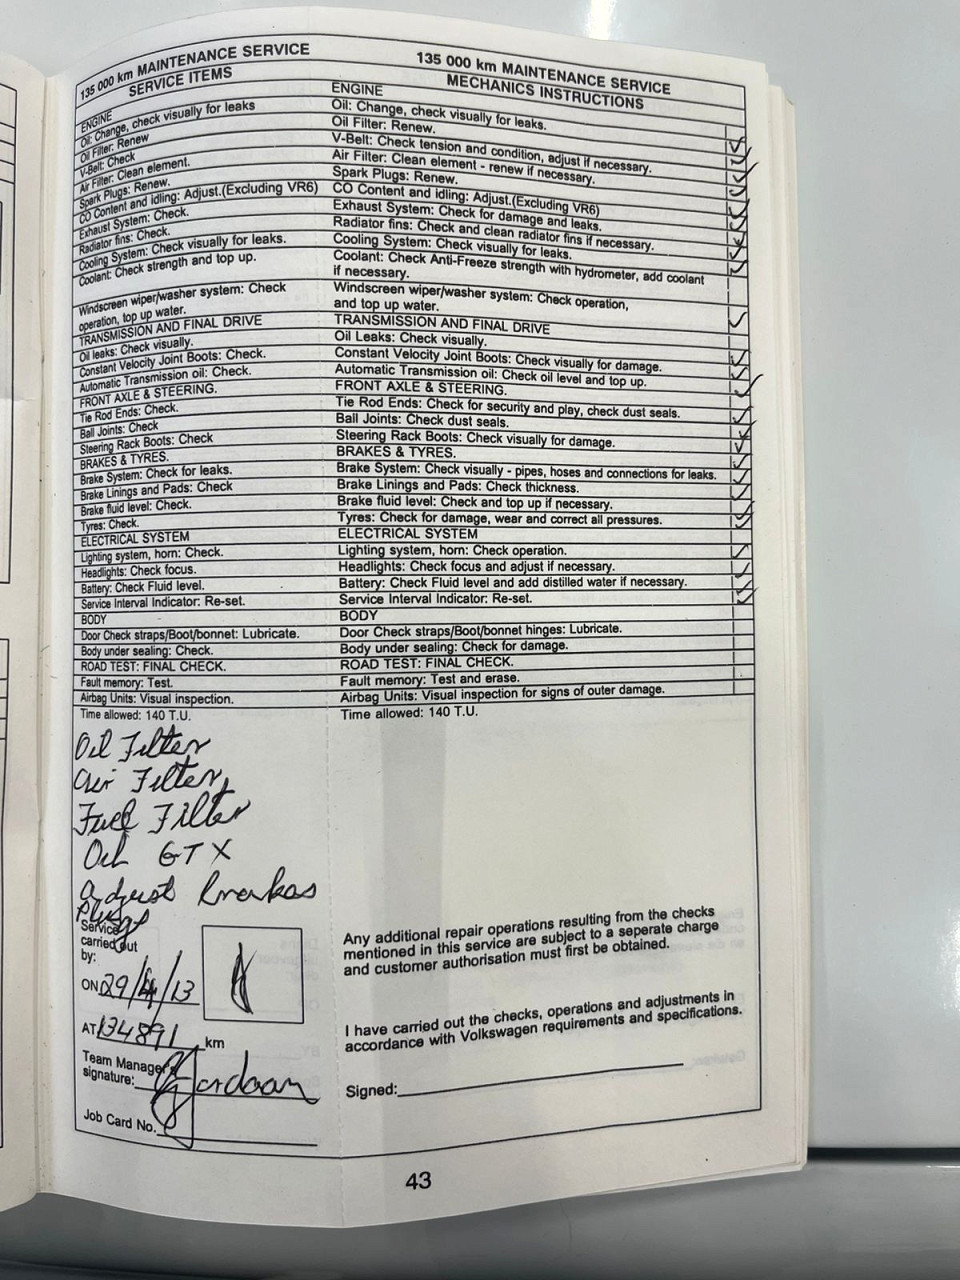 135 000 km MAINTENANCE SERVICE
SERVICE ITEMS
ENGINE
Oil: Change, check visually for leaks
Oil Filter: Renew
V-Belt: Check
Air Filter: Clean element.
Spark Plugs: Renew.
CO Content and idling: Adjust.(Excluding VR6)
Exhaust System: Check.
Radiator fins: Check.
Cooling System: Check visually for leaks.
Coolant: Check strength and top up.
Windscreen wiper/washer system: Check
operation, top up water.
TRANSMISSION AND FINAL DRIVE
Oil leaks: Check visually.
Constant Velocity Joint Boots: Check.
Automatic Transmission oil: Check.
FRONT AXLE & STEERING.
Tie Rod Ends: Check.
Ball Joints: Check
Steering Rack Boots: Check
BRAKES & TYRES.
Brake System: Check for leaks.
Brake Linings and Pads: Check
Brake fluid level: Check.
Tyres: Check.
ELECTRICAL SYSTEM
Lighting system, horn: Check.
Headlights: Check focus.
Battery: Check Fluid level.
Service Interval Indicator: Re-set.
BODY
Door Check straps/Boot/bonnet: Lubricate.
Body under sealing: Check.
ROAD TEST: FINAL CHECK.
Fault memory: Test.
Airbag Units: Visual inspection.
Time allowed: 140 T.U.
Oil Filter
Air Filter,
Fuel Filter
Oil GTX
Adjust brakes
Plugs
Service
carried out
by:
ON 29/4/13
AT 134891 km
Team Manager
signature:
Job Card No.
135 000 km MAINTENANCE SERVICE
MECHANICS INSTRUCTIONS
ENGINE
Oil: Change, check visually for leaks.
Oil Filter: Renew.
V-Belt: Check tension and condition, adjust if necessary.
Air Filter: Clean element - renew if necessary.
Spark Plugs: Renew.
CO Content and idling: Adjust.(Excluding VR6)
Exhaust System: Check for damage and leaks.
Radiator fins: Check and clean radiator fins if necessary.
Cooling System: Check visually for leaks.
Coolant: Check Anti-Freeze strength with hydrometer, add coolant
if necessary.
Windscreen wiper/washer system: Check operation,
and top up water.
TRANSMISSION AND FINAL DRIVE
Oil Leaks: Check visually.
Constant Velocity Joint Boots: Check visually for damage.
Automatic Transmission oil: Check oil level and top up.
FRONT AXLE & STEERING.
Tie Rod Ends: Check for security and play, check dust seals.
Ball Joints: Check dust seals.
Steering Rack Boots: Check visually for damage.
BRAKES & TYRES.
Brake System: Check visually - pipes, hoses and connections for leaks.
Brake Linings and Pads: Check thickness.
Brake fluid level: Check and top up if necessary.
Tyres: Check for damage, wear and correct all pressures.
ELECTRICAL SYSTEM
Lighting system, horn: Check operation.
Headlights: Check focus and adjust if necessary.
Battery: Check Fluid level and add distilled water if necessary.
Service Interval Indicator: Re-set.
BODY
Door Check straps/Boot/bonnet hinges: Lubricate.
Body under sealing: Check for damage.
ROAD TEST: FINAL CHECK.
Fault memory: Test and erase.
Airbag Units: Visual inspection for signs of outer damage.
Time allowed: 140 T.U.
Any additional repair operations resulting from the checks
mentioned in this service are subject to a seperate charge
and customer authorisation must first be obtained.
I have carried out the checks, operations and adjustments in
accordance with Volkswagen requirements and specifications.
Signed:
43